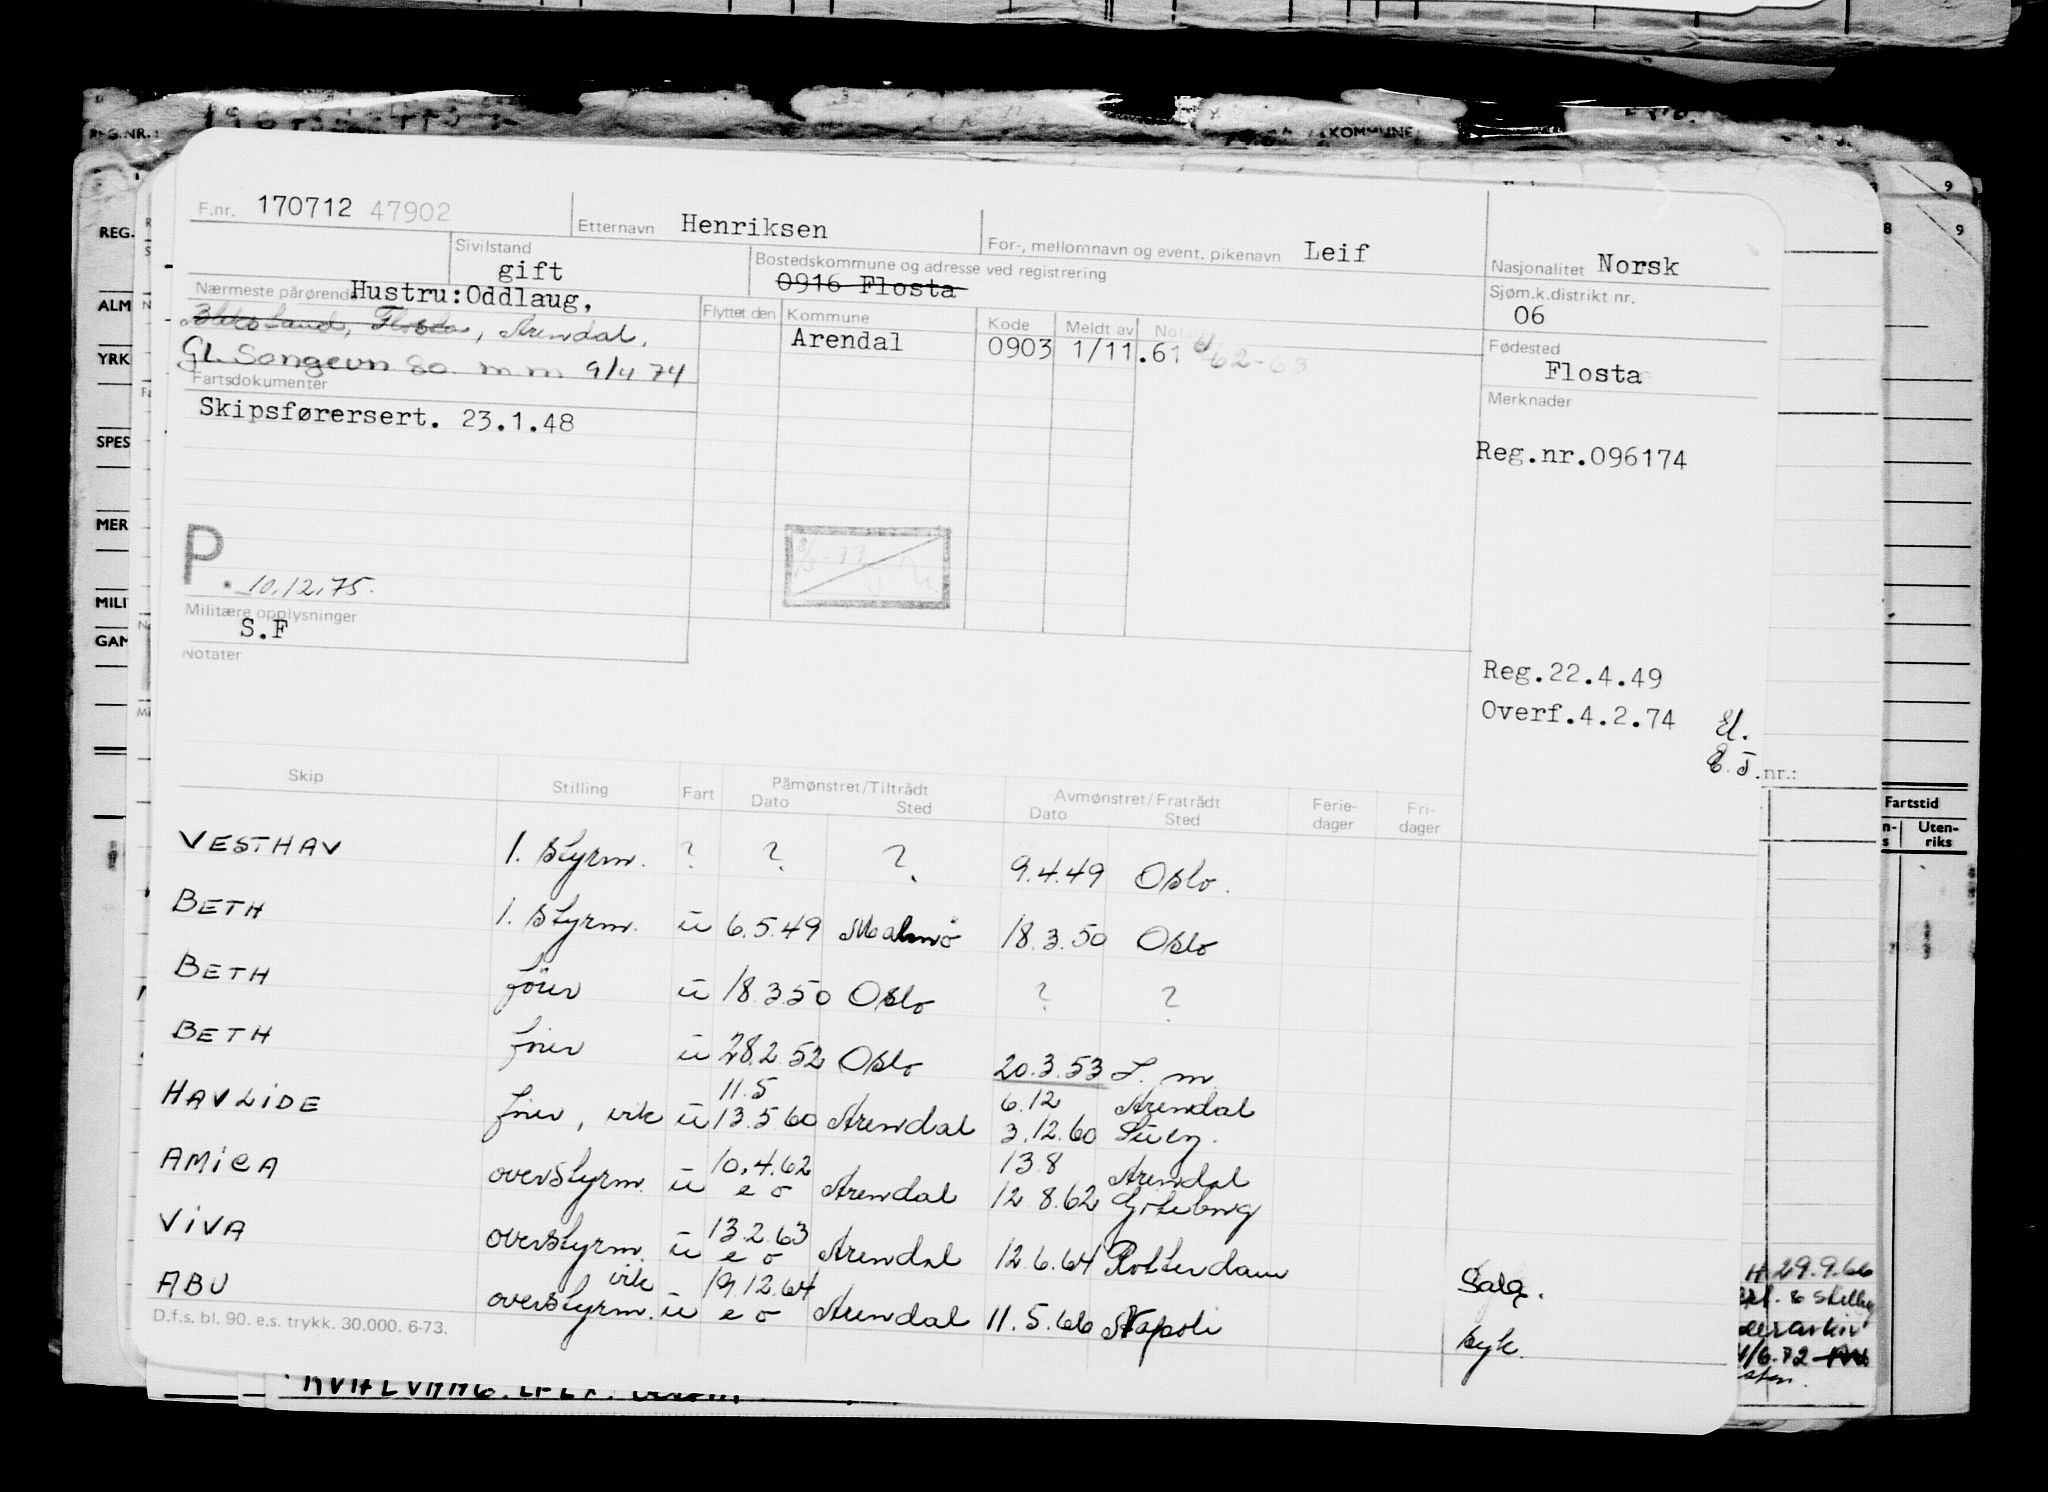 F.nr. 170712 47902
Etternavn Henriksen
For-, mellomnavn og event. pikenavn Leif
Nasjonalitet Norsk
Sivilstand
gift
Bostedskommune og adresse ved registrering
0916 Flosta
Sjøm.k.distrikt nr.
06
Nærmeste pårørende Hustru:Oddlaug,
Flosta, Arendal.
GL. Songevn 80. m m 9/4 74
Flyttet den Kommune Kode Meldt av Notater
Arendal 0903 1/11.61 62-63
Fødested
Flosta
Fartsdokumenter
Skipsførersert. 23.1.48
Merknader
Reg.nr.096174
P. 10.12.75.
Militære opplysninger
S.F
Notater
Reg.22.4.49
Overf.4.2.74 El.
E.J.
nr.:
Skip Stilling Fart Påmønstret/Tiltrådt Avmønstret/Fratrådt Ferie- Fri-
Dato Sted Dato Sted dager dager
VESTHAV 1. styrm. ? ? ? 9.4.49 Oslo.
BETH 1. styrm. u 6.5.49 Malmö 18.3.50 Oslo
BETH förer u 18.3.50 Oslo ? ?
BETH förer u 28.2.52 Oslo 20.3.53 L. m.
11.5 6.12 Arendal
HAVLIDE förer, vik u 13.5.60 Arendal 3.12.60 Suez.
10.4.62 13.8 Arendal
AMICA overstyrm. u e o Arendal 12.8.62 Göteborg
13.2.63
VIVA overstyrm. u e o Arendal 12.6.64 Rotterdam Salg.
vik 19.12.64
ABU overstyrm. u e o Arendal 11.5.66 Napoli syk.
D.f.s. bl. 90. e.s. trykk. 30.000. 6-73.
REG.NR.:
KOMMUNE
REG.
ALM
YRK
SPES
MER
MILI
GAM
8 9
9
Fartstid
Uten-
riks
29.9.66